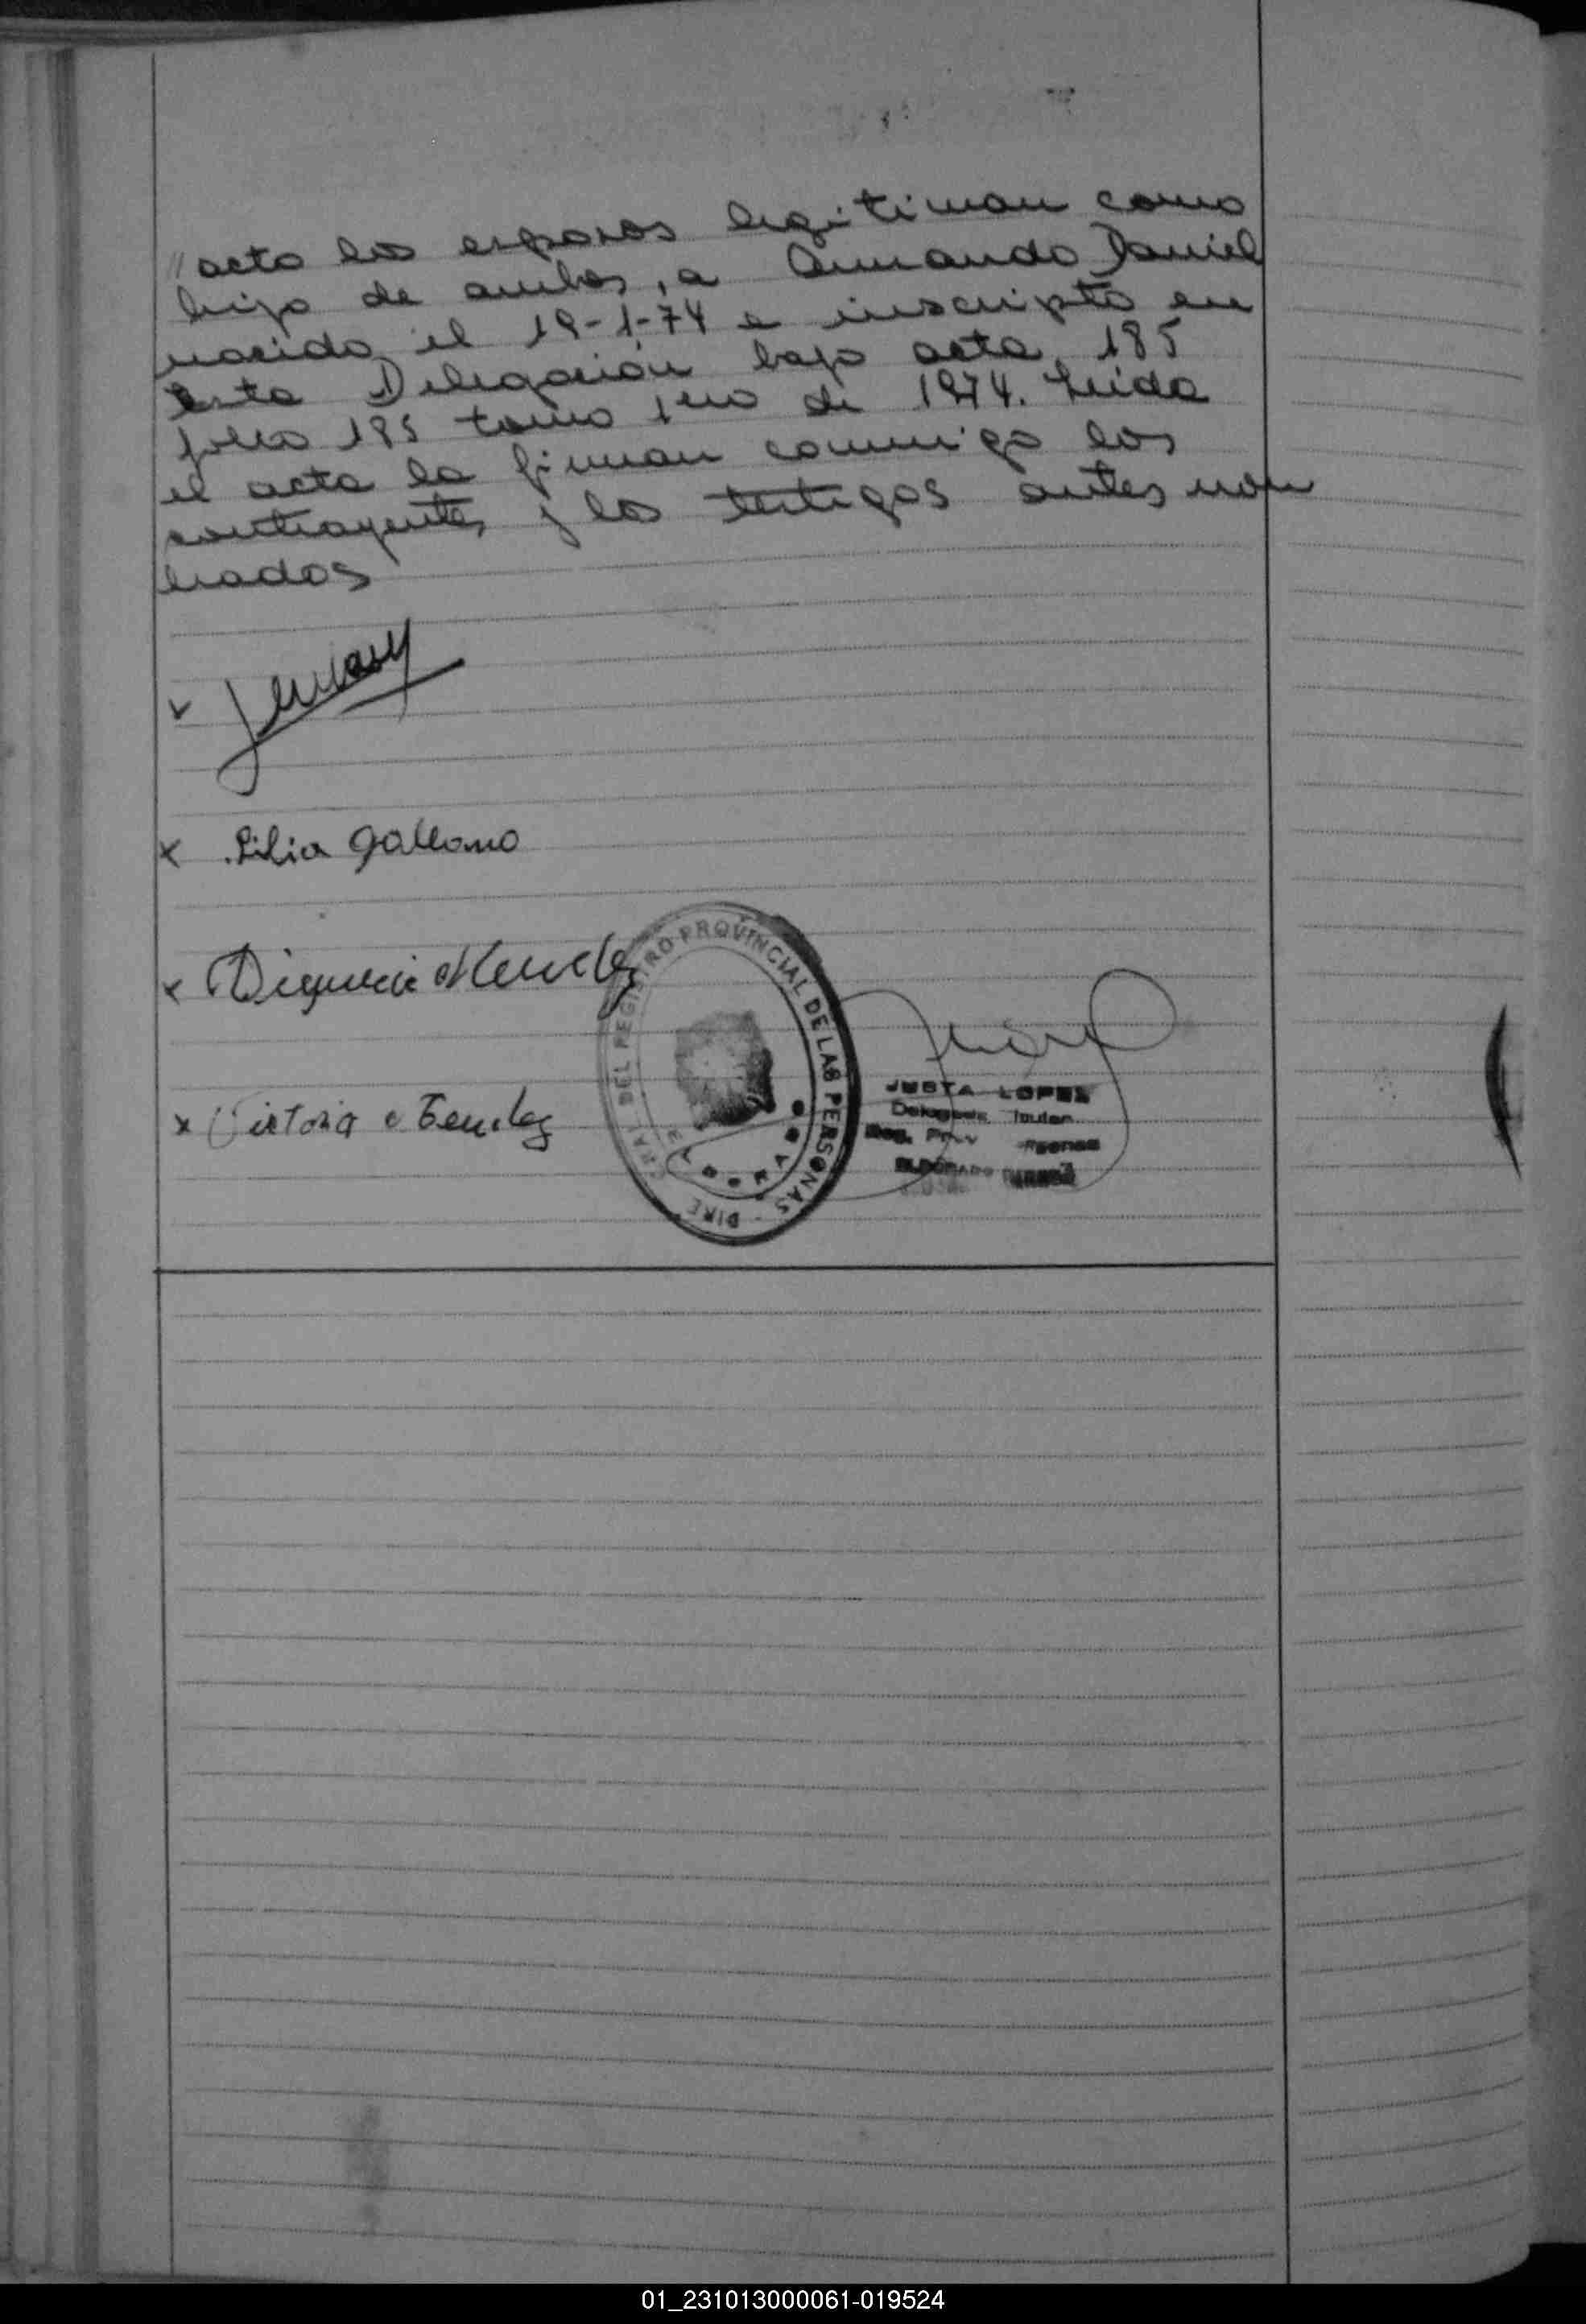 "acto los esposos legitiman como
hijo de ambos, a Armando Daniel
nacido el 19-1-74 e inscripto en
esta Delegación bajo acta 185
folio 185 tomo 1ero de 1974. Leida
el acta la firman conmigo los
contrayentes y los testigos antes nom
brados
Lilia Galleano
Victoria
DEL REGISTRO PROVINCIAL DE LAS PERSONAS - DIRE
JUSTA LOPEZ
ELDORADO
01_231013000061-019524